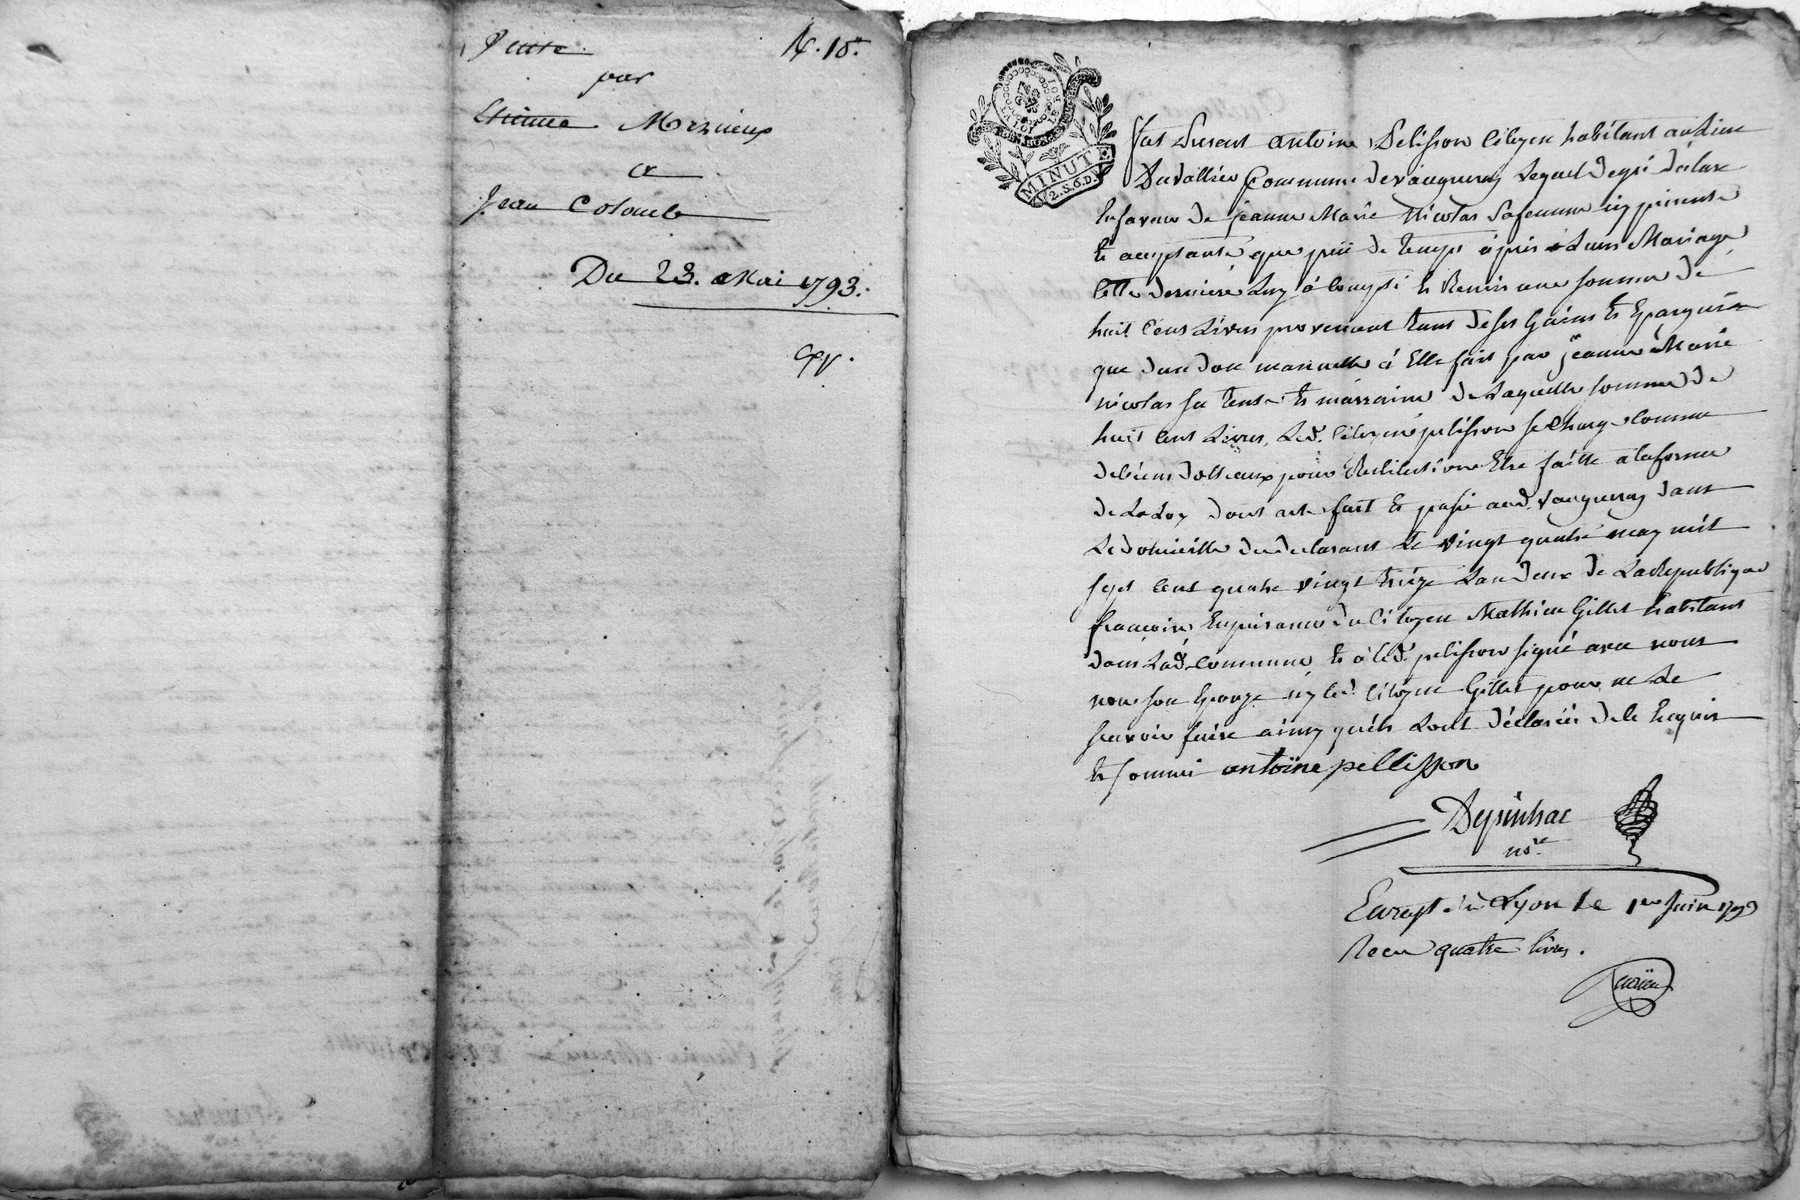 Vente
par
Etienne Morznieux
a
Jean Colomb
Du 28. Mai 1793.
N. 18.
LA LOI LE ROI
MINUT.
2.S.6.D.
fut présent antoine Pelisson Citoyen habitant au lieu
Duvallier Commune de vaugneray Lequel degré déclare
En faveur de jeanne Marie Nicolas Safemme icy presente
Et acceptante que peu de temps àpres Leur Mariage
Cette derniere Luy à Compté Et Remis une somme de
huit Cens Livres provenant tant de ses Gains Et Epargnes
que dun don manuelle à Elle fait par jeanne Marie
nicolas sa tente Et marraine de Laquelle somme de
huit Cens Livres, Led. Citoyen pelisson se Charge comme
de biens dotteaux pour Restitution Etre faitte alaforme
de LaLoy dont acte fait Et passé aud. Vaugneray dans
Le domicille du declarant Le vingt quatre may mil
sept Cens quatre vingt treize Lan deux de La Republique
francoise En presence du Citoyen Mathieu Gillet habitant
dans Lad. Commune Et à led. pelisson signé avec nous
non son Epouze ny led. Citoyen Gillet pour ne Le
scavoir faire ainsy quils Lont déclarés de ce Enquis
Et sommé antoine pellisson
Depinhac
nore
Enregt. à Lyon le 1er Juin 1793
Recu quatre livres.